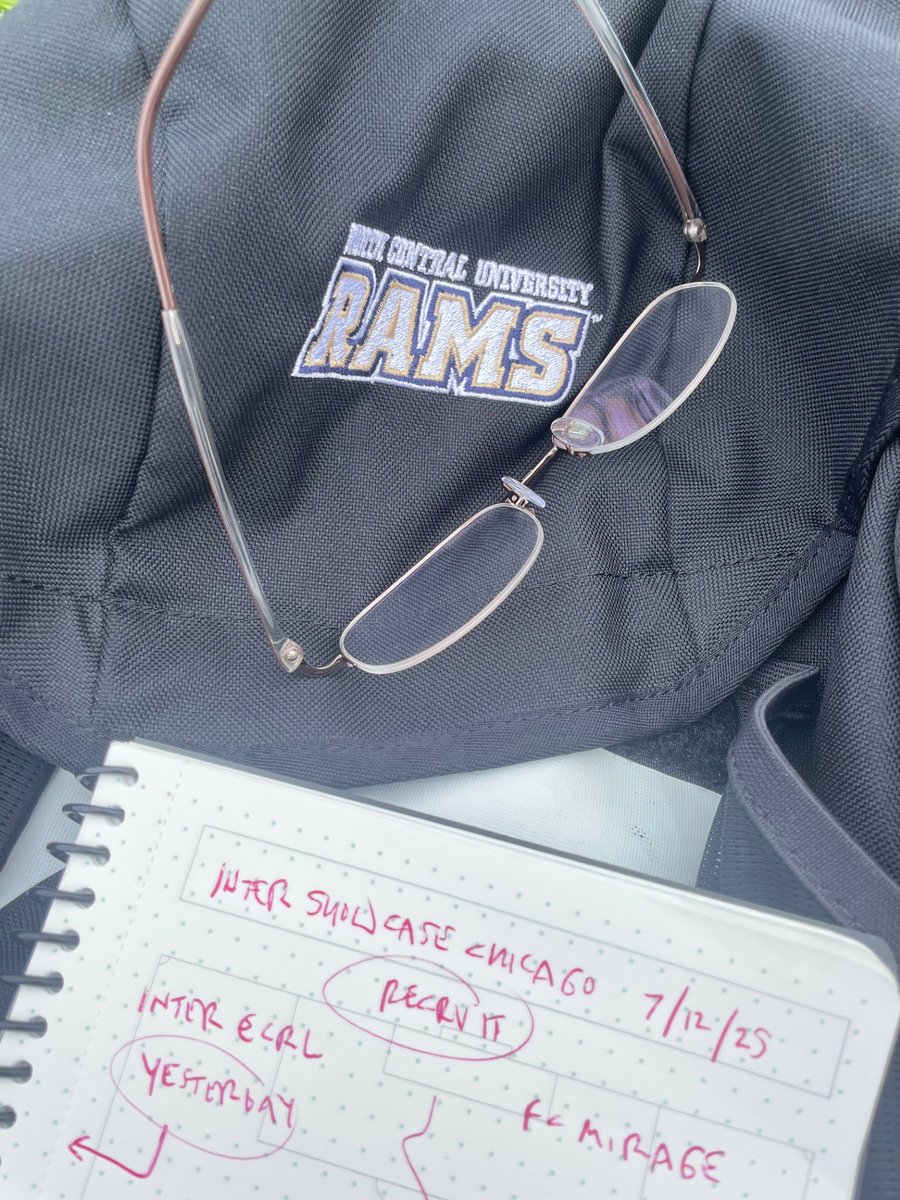 NORTH CENTRAL UNIVERSITY
RAMS™
INTER SHOWCASE CHICAGO 7/12/25
RECRUIT
INTER ECRL
YESTERDAY
FC MIRAGE